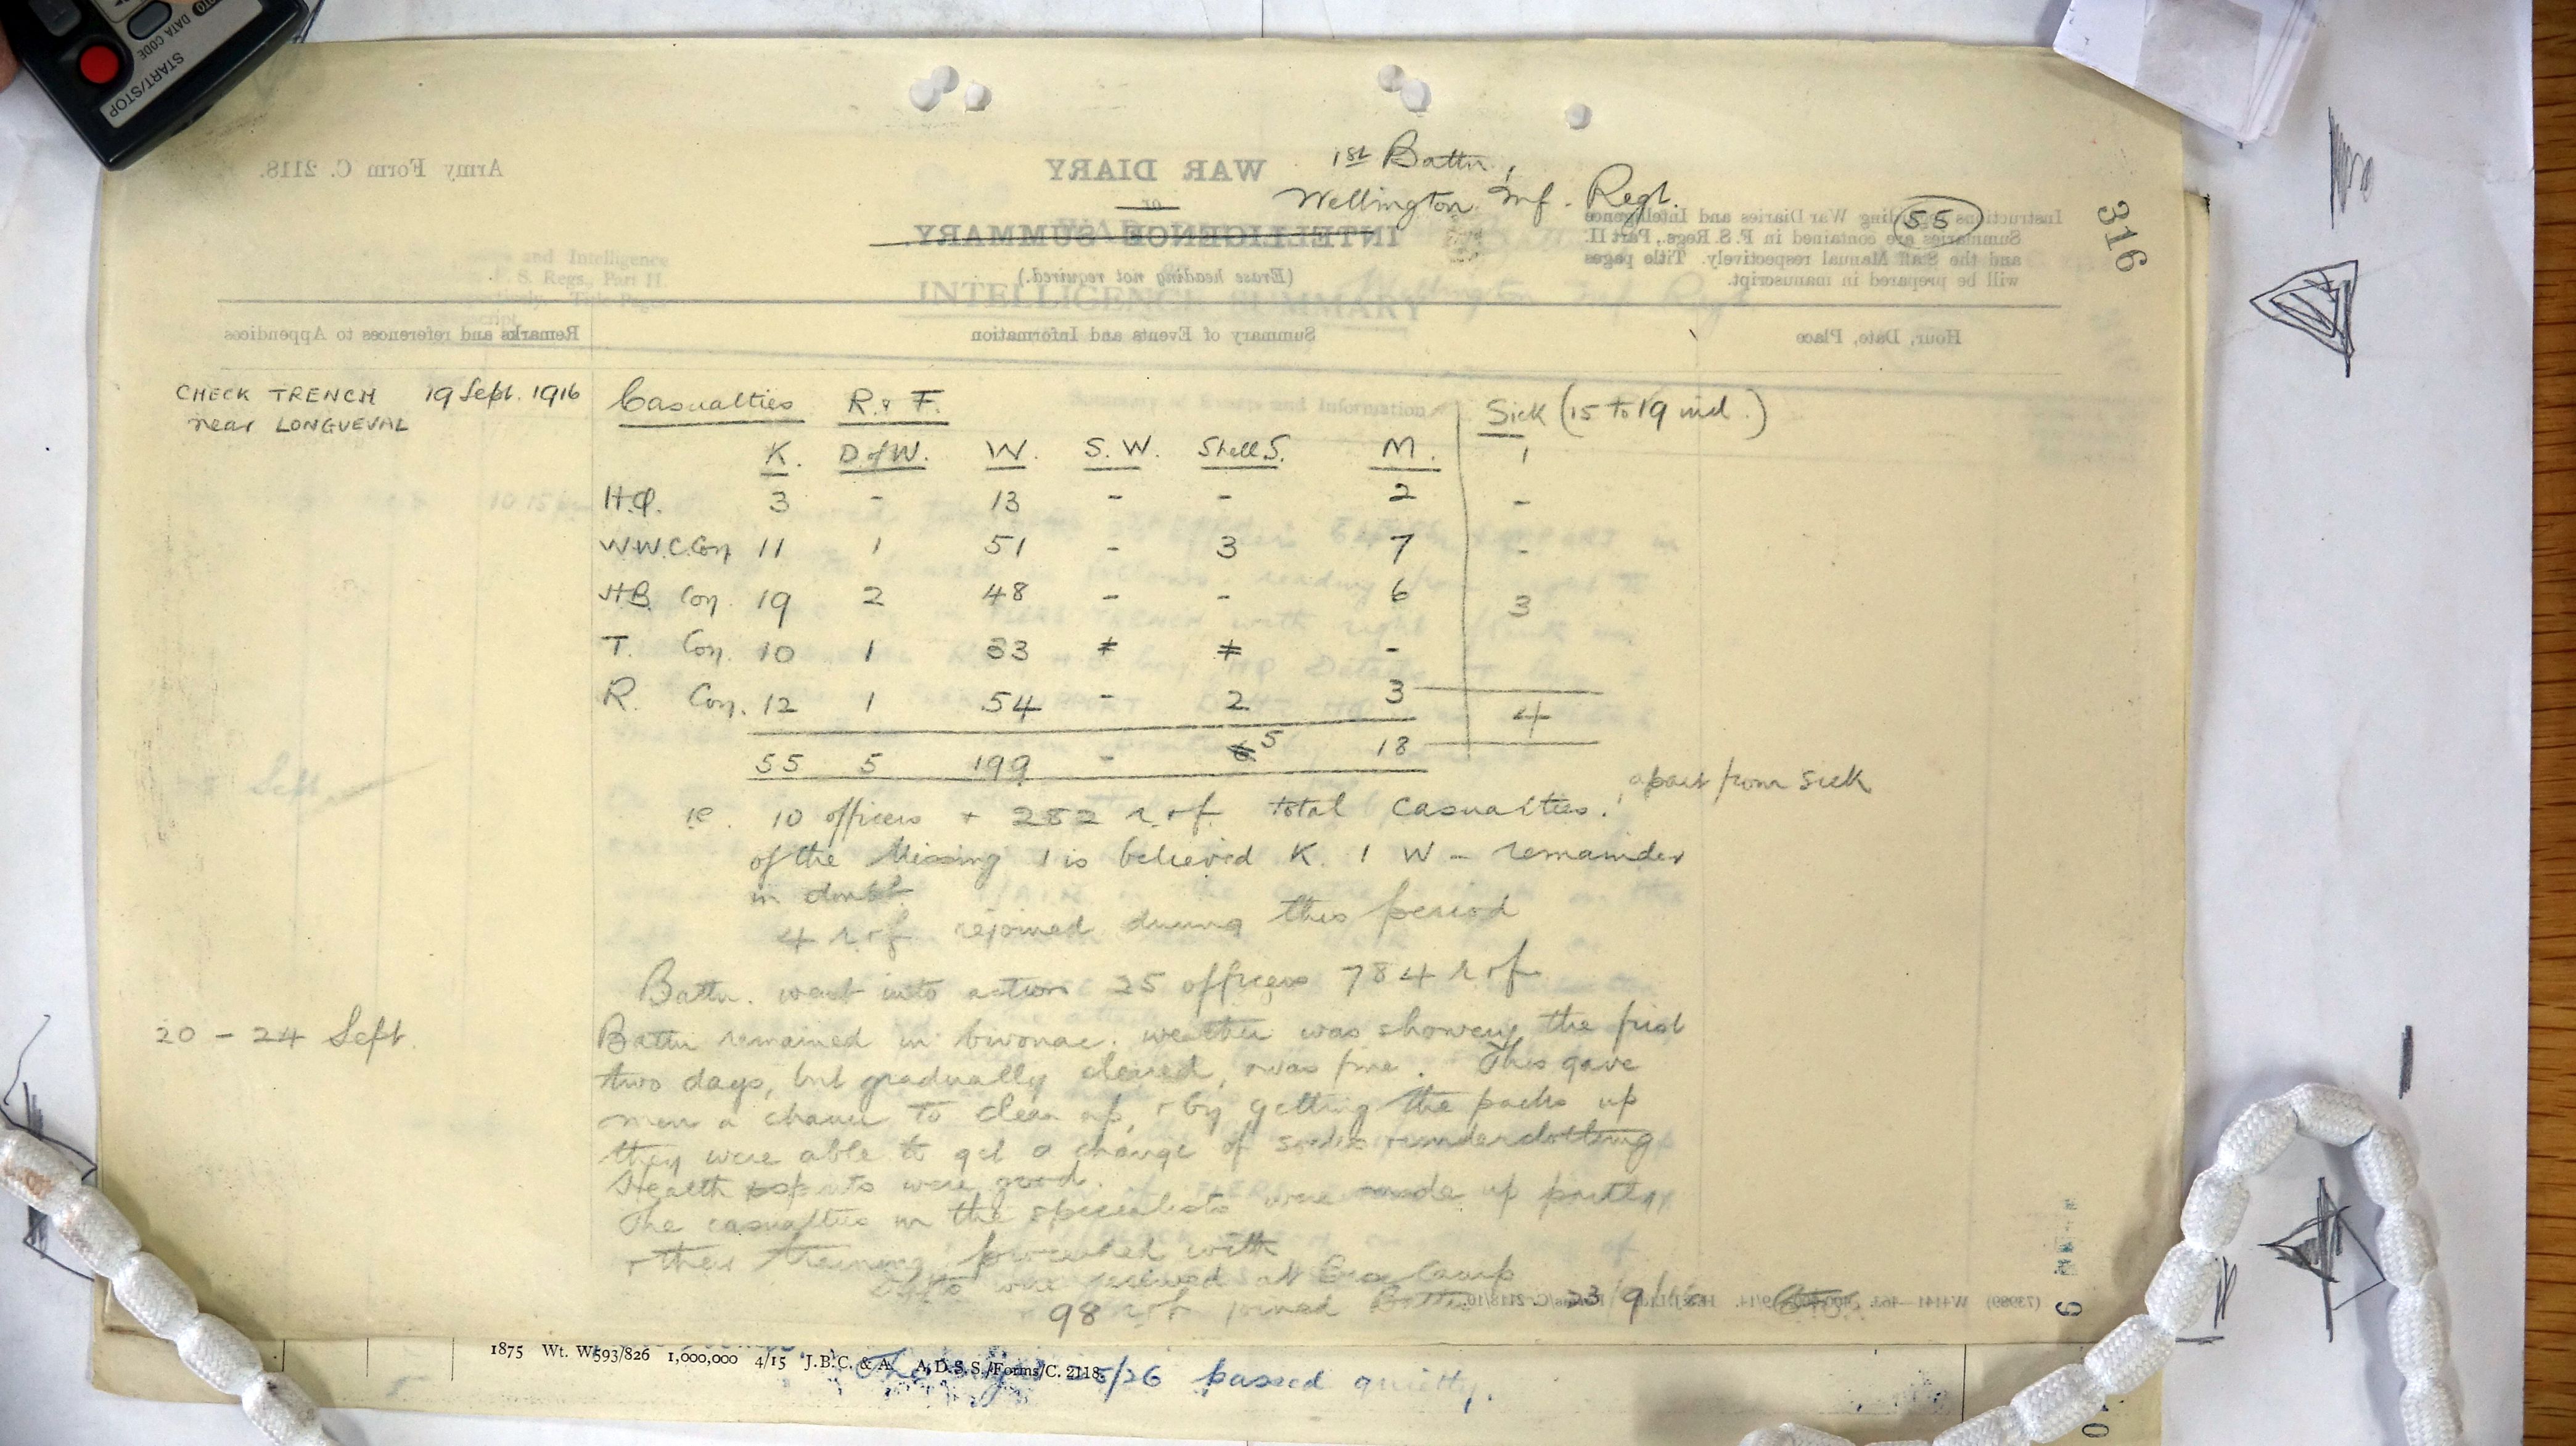 START/STOP
DATA CODE
1st Battn,
Wellington Inf. Regt.
55
316
Army Form C. 2118.
WAR DIARY
or
INTELLIGENCE SUMMARY.
(Erase heading not required.)
Instructions regarding War Diaries and Intelligence
Summaries are contained in F.S. Regs., Part II.
and the Staff Manual respectively. Title pages
will be prepared in manuscript.
and Intelligence
F. S. Regs., Part II.
Title Pages
INTELLIGENCE SUMMARY
Hour, Date, Place
Summary of Events and Information
Remarks and references to Appendices
CHECK TRENCH 19 Sept. 1916
near LONGUEVAL
Casualties R. & F. Sick (15 to 19 incl.)
K. D. of W. W. S. W. Shell S. M. 1
H.Q. 3 - 13 - - 2 -
W.W.C. Coy 11 1 51 - 3 7 -
H.B. Coy. 19 2 48 - - 6 3
T. Coy. 10 1 33 -
R. Coy. 12 1 54 - 2 3
55 5 199 - 5 18 4
ie. 10 officers + 282 r. & f. total casualties, apart from sick
of the Missing 1 is believed K. 1 W - remainder
in doubt.
4 r & f rejoined during this period
Battn. went into action 25 officers 784 r & f
20 - 24 Sept.
Battn remained in bivouac. weather was showery the first
two days, but gradually cleared, & was fine. This gave
men a chance to clean up, & by getting the packs up
they were able to get a change of socks & underclothing
Health & spirits were good.
The casualties in the specialists were made up partly
& their training proceeded with
were received at Camp
98 r & f joined Battn 23/9/16
1875 Wt. W593/826 1,000,000 4/15 J.B.C. & A. A.D.S.S./Forms/C. 2118.
25/26 passed quietly.